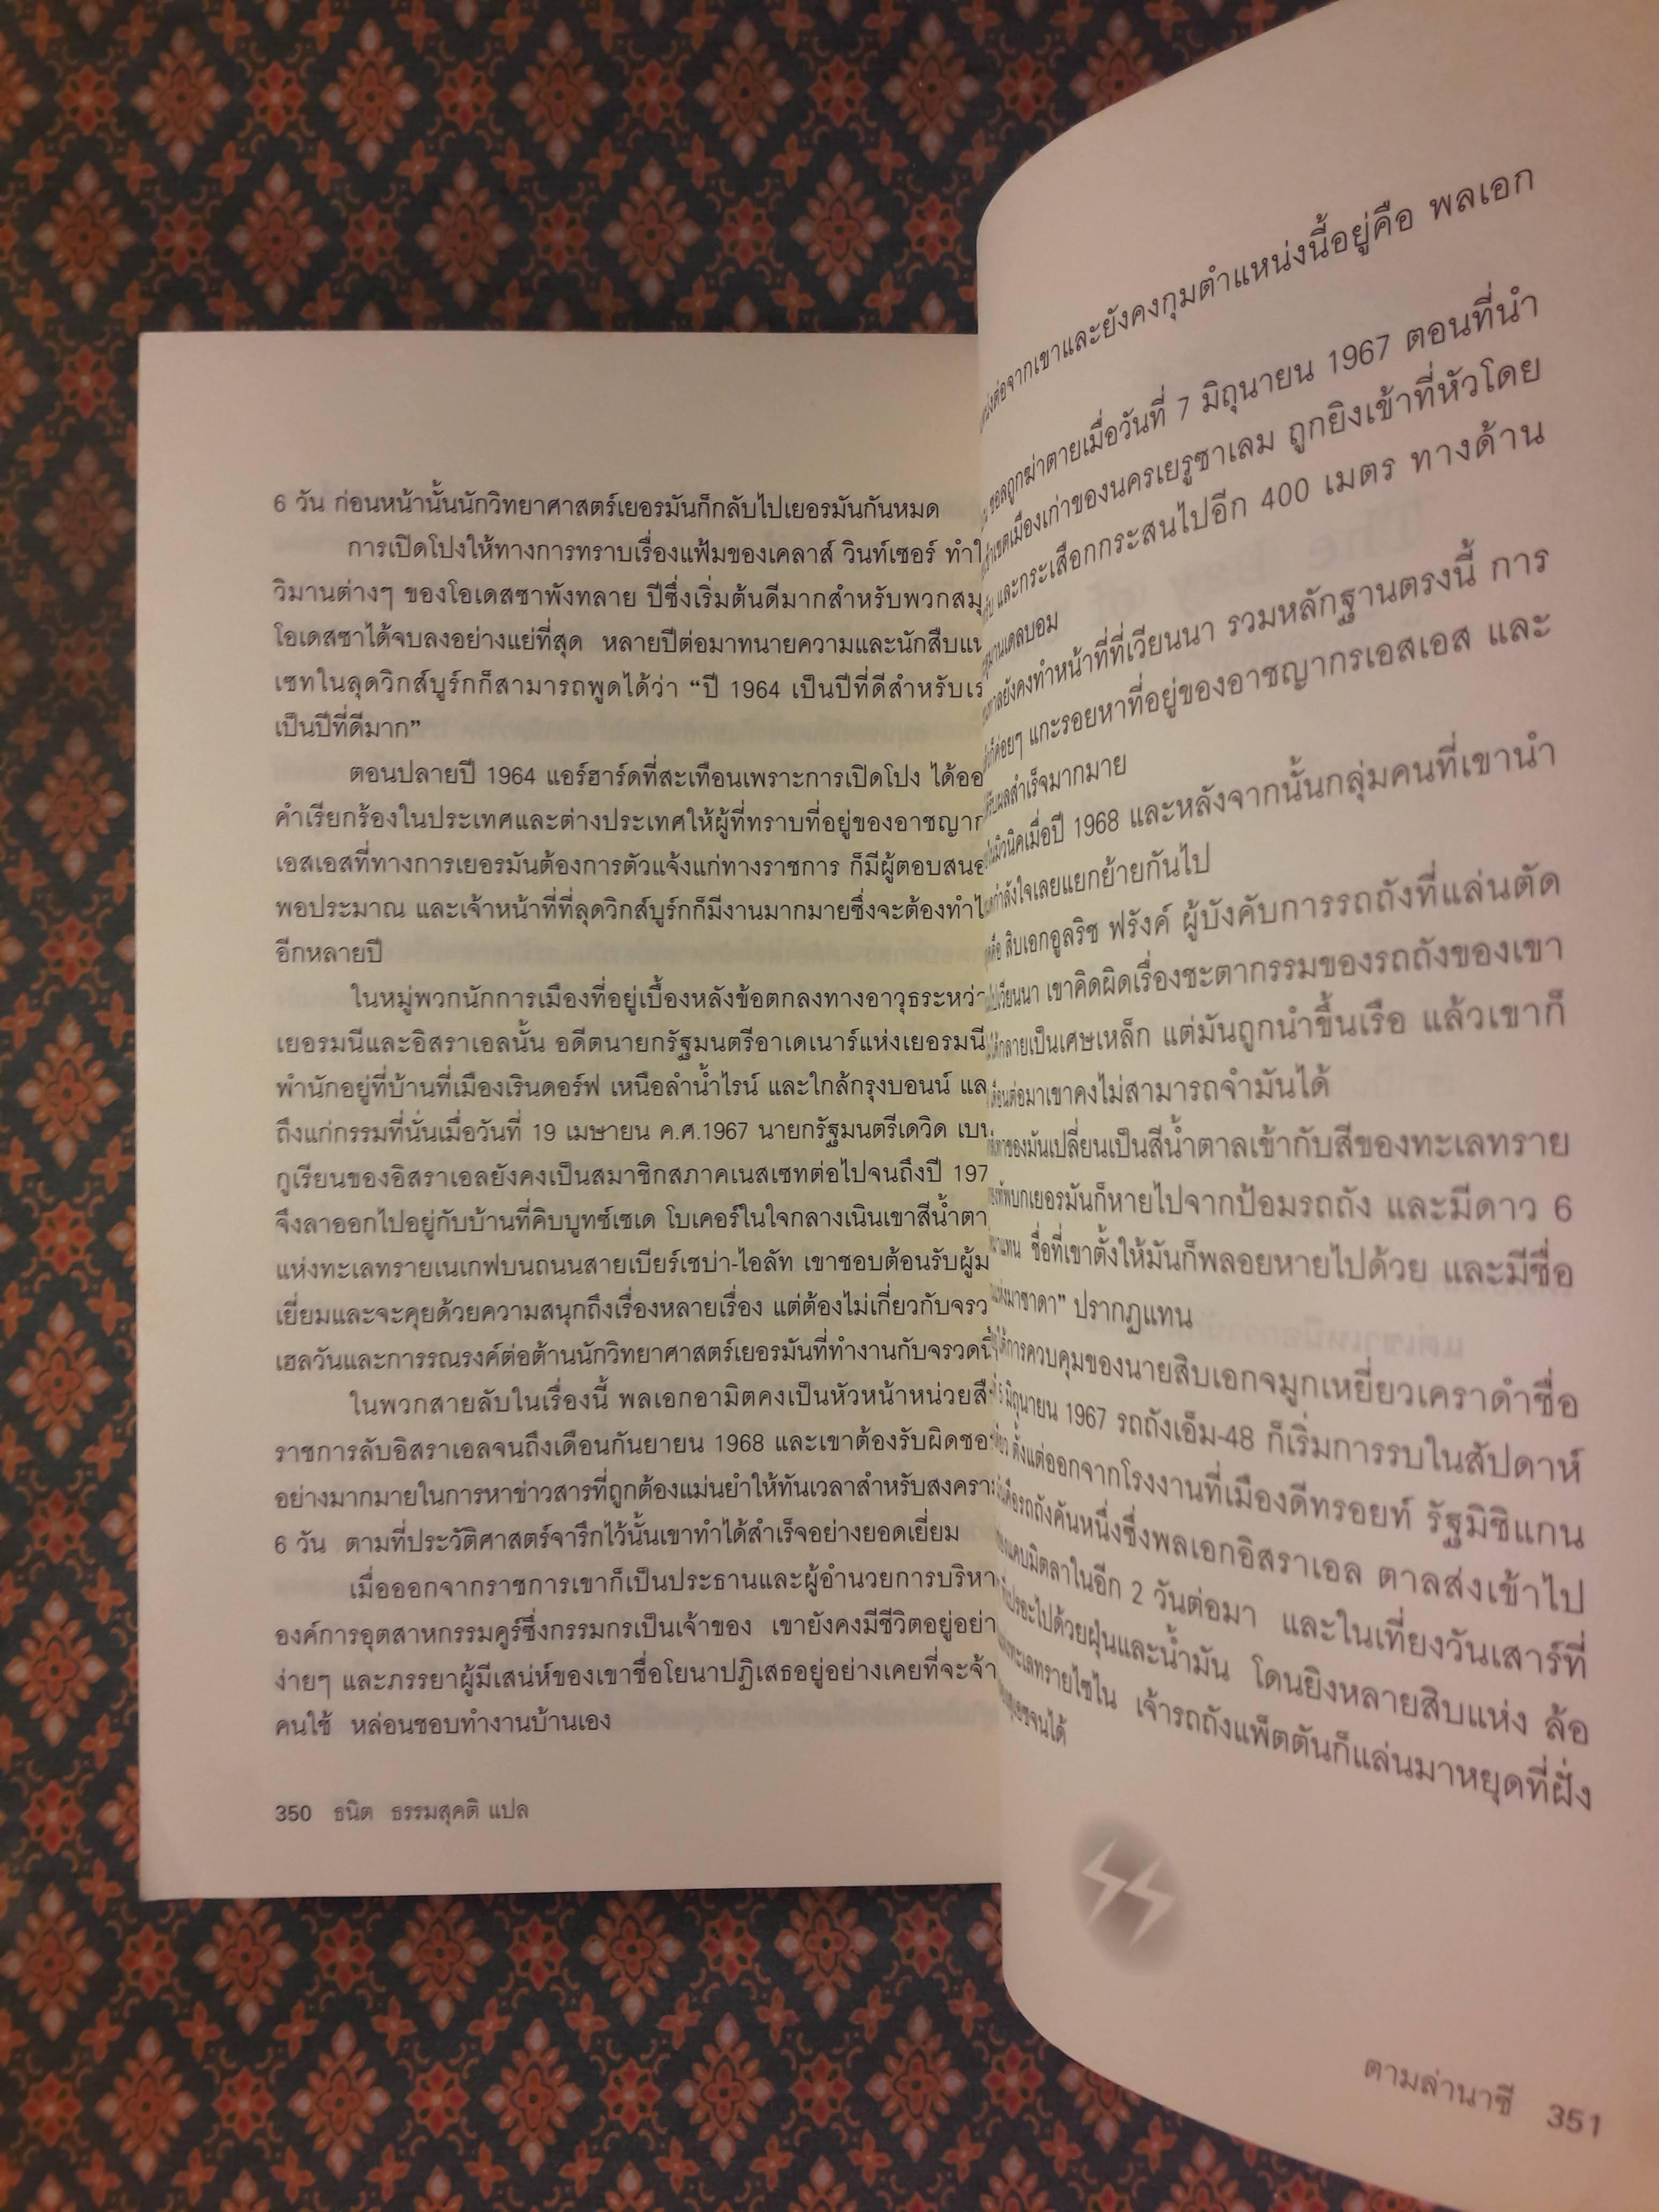 6 วัน ก่อนหน้านั้นนักวิทยาศาสตร์เยอรมันก็กลับไปเยอรมันกันหมด
การเปิดโปงให้ทางการทราบเรื่องแฟ้มของเคลาส์ วินท์เซอร์
วิมานต่างๆ ของโอเดสซาพังทลาย ปีซึ่งเริ่มต้นดีมากสำหรับพวก
โอเดสซาได้จบลงอย่างแย่ที่สุด หลายปีต่อมาทนายความและนักสืบ
เซทในลุดวิกส์บูร์กก็สามารถพูดได้ว่า “ปี 1964 เป็นปีที่ดีสำหรับ
เป็นปีที่ดีมาก”
ตอนปลายปี 1964 แอร์ฮาร์ดที่สะเทือนเพราะการเปิดโปง
คำเรียกร้องในประเทศและต่างประเทศให้ผู้ที่ทราบที่อยู่ของ
เอสเอสที่ทางการเยอรมันต้องการตัวแจ้งแก่ทางราชการ ก็มีผู้ตอบ
พอประมาณ และเจ้าหน้าที่ที่ลุดวิกส์บูร์กก็มีงานมากมายซึ่งจะต้องทำ
อีกหลายปี
ในหมู่พวกนักการเมืองที่อยู่เบื้องหลังข้อตกลงทางอาวุธ
เยอรมนีและอิสราเอลนั้น อดีตนายกรัฐมนตรีอาเดเนาร์แห่งเยอรมนี
พำนักอยู่ที่บ้านที่เมืองเรินดอร์ฟ เหนือลำน้ำไรน์ และใกล้กรุงบอนน์
ถึงแก่กรรมที่นั่นเมื่อวันที่ 19 เมษายน ค.ศ.1967 นายกรัฐมนตรีเดวิด
กูเรียนของอิสราเอลยังคงเป็นสมาชิกสภาคเนสเซทต่อไปจนถึงปี
จึงลาออกไปอยู่กับบ้านที่คิบบูทซ์เซเด โบเคอร์ในใจกลางเนินเขา
แห่งทะเลทรายเนเกฟบนถนนสายเบียร์เชบ่า-ไอลัท เขาชอบต้อนรับ
เยี่ยมและจะคุยด้วยความสนุกถึงเรื่องหลายเรื่อง แต่ต้องไม่เกี่ยวกับ
เฮลวันและการรณรงค์ต่อต้านนักวิทยาศาสตร์เยอรมันที่ทำงานกับจรวด
ในพวกสายลับในเรื่องนี้ พลเอกอามิตคงเป็นหัวหน้าหน่วย
ราชการลับอิสราเอลจนถึงเดือนกันยายน 1968 และเขาต้อง
อย่างมากมายในการหาข่าวสารที่ถูกต้องแม่นยำให้ทันเวลาสำหรับ
6 วัน ตามที่ประวัติศาสตร์จารึกไว้นั้นเขาทำได้สำเร็จอย่างยอดเยี่ยม
เมื่อออกจากราชการเขาก็เป็นประธานและผู้อำนวยการ
องค์การอุตสาหกรรมคูร์ซึ่งกรรมกรเป็นเจ้าของ เขายังคงมีชีวิตอยู่
ง่ายๆ และภรรยาผู้มีเสน่ห์ของเขาชื่อโยนาปฏิเสธอยู่อย่างเคยที่จะ
คนใช้ หล่อนชอบทำงานบ้านเอง
350 ธนิต ธรรมสุคติ แปล
ต่อจากเขาและยังคงกุมตำแหน่งนี้อยู่คือ พลเอก
ถูกฆ่าตายเมื่อวันที่ 7 มิถุนายน 1967 ตอนที่นำ
เมืองเก่าของนครเยรูซาเลม ถูกยิงเข้าที่หัวโดย
และกระเสือกกระสนไปอีก 400 เมตร ทางด้าน
ยังคงทำหน้าที่ที่เวียนนา รวมหลักฐานตรงนี้ การ
ค่อยๆ แกะรอยหาที่อยู่ของอาชญากรเอสเอส และ
ผลสำเร็จมากมาย
เมื่อปี 1968 และหลังจากนั้นกลุ่มคนที่เขานำ
เลยแยกย้ายกันไป
คือ สิบเอกอูลริช ฟรังค์ ผู้บังคับการรถถังที่แล่นตัด
เวียนนา เขาคิดผิดเรื่องชะตากรรมของรถถังของเขา
กลายเป็นเศษเหล็ก แต่มันถูกนำขึ้นเรือ แล้วเขาก็
ต่อมาเขาคงไม่สามารถจำมันได้
ของมันเปลี่ยนเป็นสีน้ำตาลเข้ากับสีของทะเลทราย
เยอรมันก็หายไปจากป้อมรถถัง และมีดาว 6
แทน ชื่อที่เขาตั้งให้มันก็พลอยหายไปด้วย และมีชื่อ
แห่งมาซาดา” ปรากฏแทน
การควบคุมของนายสิบเอกจมูกเหยี่ยวเคราดำชื่อ
5 มิถุนายน 1967 รถถังเอ็ม-48 ก็เริ่มการรบในสัปดาห์
ตั้งแต่ออกจากโรงงานที่เมืองดีทรอยท์ รัฐมิชิแกน
คือรถถังคันหนึ่งซึ่งพลเอกอิสราเอล ตาลส่งเข้าไป
มิตลาในอีก 2 วันต่อมา และในเที่ยงวันเสาร์ที่
ไปด้วยฝุ่นและน้ำมัน โดนยิงหลายสิบแห่ง ล้อ
ทะเลทรายไซไน เจ้ารถถังแพ็ตตันก็แล่นมาหยุดที่ฝั่ง
จนได้
ตามล่านาซี 351